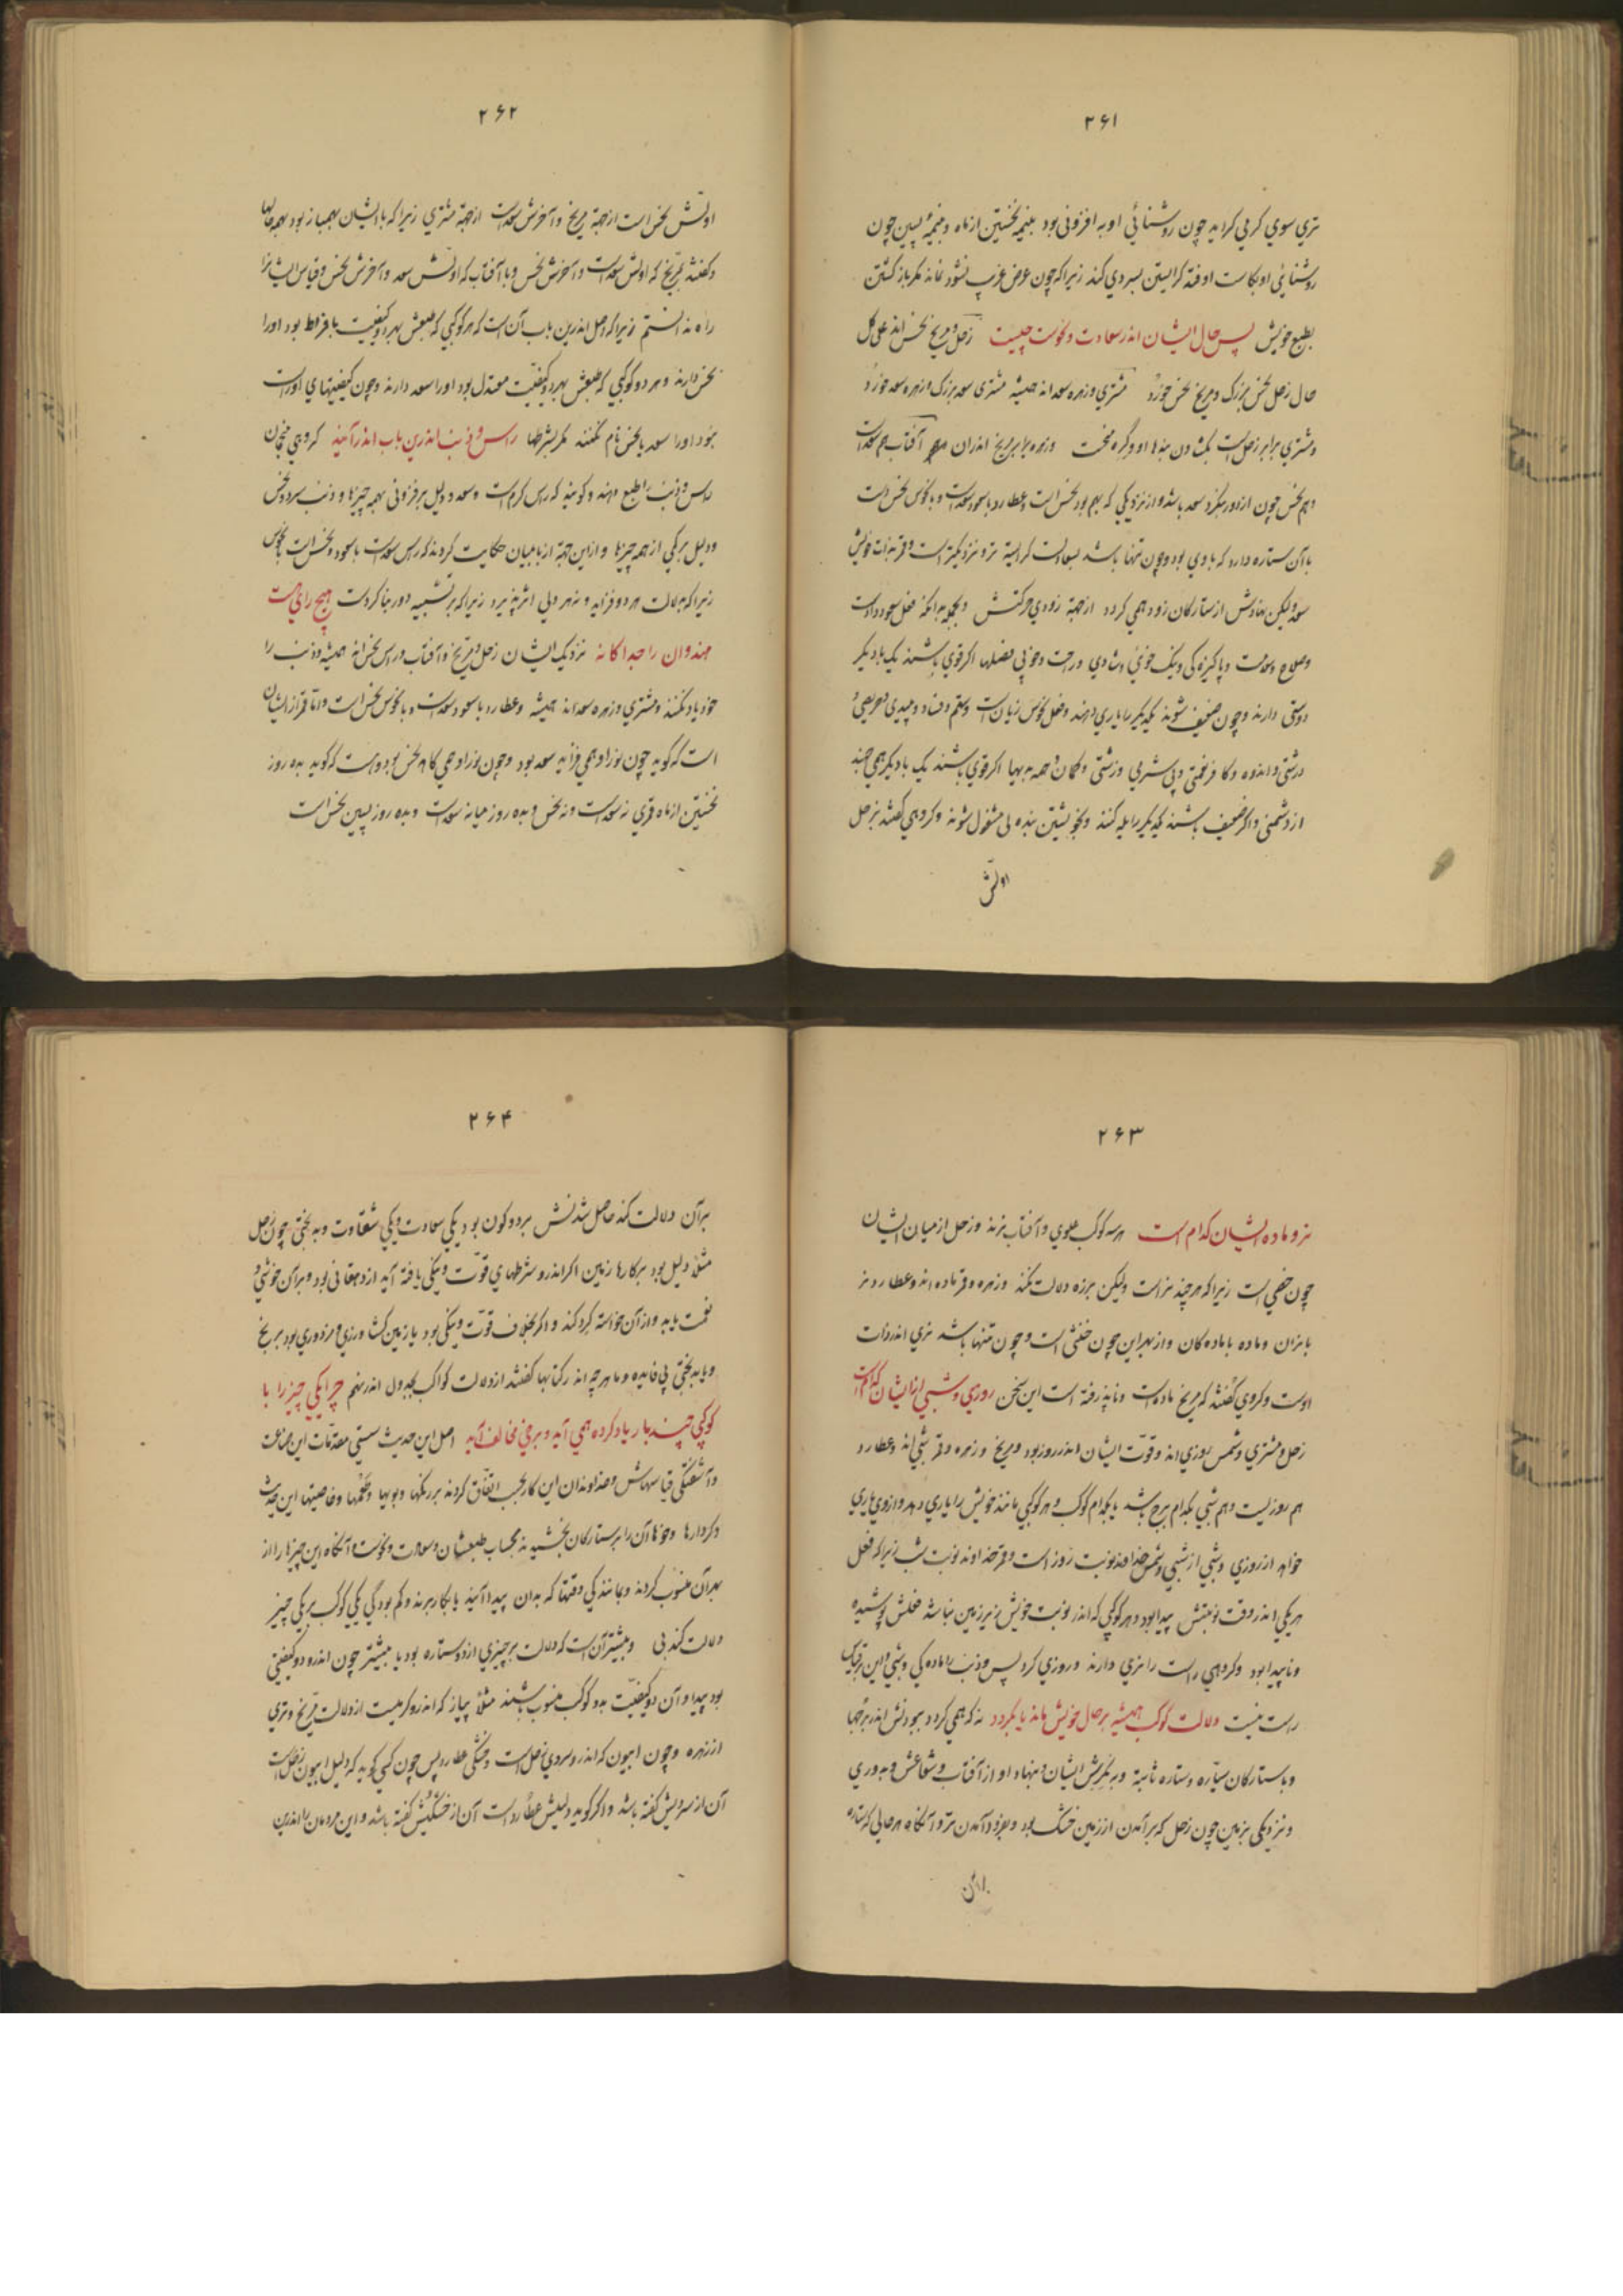 ۲۶۱
تری سوی گرمی گراید چون روشنائی او به افزونی بود بنیمهٔ نخستین از ماه و بنیمهٔ پسین چون
روشنائی او بکاست اوفتد گرایستن بسردی کند زیراکه چون عرض غریب نشود نماند مگر باز گشتن
بطبع خویش پس حال ایشان اندر سعادت و نحوست چیست زحل و مریخ نحس‌اند علی کل
حال زحل نحس بزرگ و مریخ نحس خورد مشتری و زهره سعد اند همیشه مشتری سعد بزرگ و زهره سعد خورد
و مشتری برابر زحلست بگشادن بندها او و گره سخت و زهره برابر مریخ اندران آفتاب هم سعدست
و هم نحس چون از دور نگرد سعد باشد و از نزدیکی که بهم بود نحس است و عطارد با سعود سعدست و با نحوس نحس است
با آن ستاره دارد که با وی بود و چون تنها باشد بسعادت گراینده تر و نزدیکتر است و قمر بذات خویش
سعد ولیکن نهادش از ستارگان زود همی گردد از جهة زودی حرکتش و بجمله بدانکه فعل سعود داد است
و صلاح و سلامت و پاکیزه گی و نیک خوئی و شادی و راحت و خوبی فضلها اگر قوی باشند یک با دیگر
دوستی دارند و چون ضعیف شوند یکدیگر را یاری دهند و فعل نحوس زیان است و ستم و فساد و پلیدی و حریصی و
درشتی و اندوه و کافر نعمتی و بی شرمی و زشتی و گمان و همه بدیها اگر قوی باشند یک با دیگر همی چخند
از دشمنی و اگر ضعیف باشند یکدیگر را یله کنند و بخویشتن بنده لی مشغول شوند و گروهی گفتند بزحل
اولش
۲۶۲
اولش نحس است از جهة مریخ و آخرش سعدست از جهة مشتری زیراکه با ایشان بهمباز بود بهمه حالها
و گفتند بمریخ که اولش سعدست و آخرش نحس و با آفتاب که اولش سعد و آخرش نحس و قیاس ایشانرا
راه ندانستم زیراکه اصل اندرین باب آن است که هر کوکبی که طبعش بهر دو کیفیت بافراط بود اورا
نحس دارند و هر دو کوکبی که طبعش بهر دو کیفیت معتدل بود اورا سعد دارند و چون کیفیتهای او راست
نبود اورا سعد یا نحس نام نکنند مگر بشرطها راس و ذنب اندرین باب اندر آیند گروهی منجمان
راس و ذنب را طبع دهند و گویند که راس گرم است و سعد و دلیل بر فزونی بهمه چیزها و ذنب سرد و نحس
و دلیل بر کمی از همه چیزها و از این جهة از بابلیان حکایت کردند که راس سعدست با سعود و نحس است بنحوس
زیراکه بدلالت هر دو فزاید و نه هر دلی اثر پذیرد زیراکه بر تشبیه دور بنا کردست هیچ رائی هست
هندوان را جداگانه نزدیک ایشان زحل و مریخ و آفتاب و راس نحس‌اند همیشه و ذنب را
خود یاد نکنند و مشتری و زهره سعداند همیشه و عطارد با سعود سعدست و با نحوس نحس است و اما قمر از ایشان
است که گوید چون نور او همی فزاید سعد بود و چون نور او همی کاهد نحس بود و هست که گوید بده روز
نخستین از ماه قمری نه سعدست و نه نحس و بده روز میانه سعدست و بده روز پسین نحس است
۲۶۳
نر و ماده ایشان کدام است هر سه کوکب علوی و آفتاب نرند و زحل از میان ایشان
چون خصی است زیراکه هر چند نر است ولیکن بر زه دلالت نکند و زهره و قمر ماده اند و عطارد نر
با نران و ماده با ماده گان و از بهر این چون خنثی است و چون تنها باشد نری اندر ذات
اوست و گروهی گفتند که مریخ ماده است و ناپذیرفته است این سخن روزی و شبی از ایشان کدام است
زحل و مشتری و شمس روزی اند و قوت ایشان اندر روز بود و مریخ و زهره و قمر شبی اند و عطارد
هم روزیست و هم شبی بکدام برج باشد یا بکدام کوکب و هر کوکبی مانند خویش را یاری دهد و از وی یاری
خواهد از روزی و شبی از شبی و شمس خداوند نوبت روز است و قمر خداوند نوبت شب زیراکه فعل
هر یکی اندر وقت نوبتش پیدا بود و هر کوکبی که اندر نوبت خویش زیر زمین نباشد فعلش پوشیده
و ناپیدا بود و گروهی راس را نری دارند و روزی کرد پس و ذنب را ماده گی و شبی و این بر قیاس
راست نیست دلالت کوکب همیشه بر حال خویش ماند یا بگردد نه که همی گردد ببودنش اندر برجها
و با ستارگان سیاره و ستاره ثابته و بنگرش ایشان و نهاد او از آفتاب و شعاعش و بدوری
و نزدیکی بزمین چون زحل که برآمدن از زمین خشک بود و بفرود آمدن تر و آنگاه هر حالی که ستاره
بر آن
۲۶۴
بر آن دلالت کند حاصل شدنش بر دو گون بود یکی سعادت و یکی شقاوت و بد بختی چون زحل
مثلا دلیل بود بر کارها زمین اگر اندرو شرطهای قوت و نیکی یافته آید از دهقانی بود و بر آن خوشی و
نعمت یابد و از آن خواسته گرد کند و اگر بخلاف قوت و نیکی بود یا زمین کشاورزی و مزدوری بود برنج
و با بدبختی بی فایده و ما هر چه اندر کتابها گفتند از دلالت کواکب بجدول اندر نهیم چرا یکی چیز را با
کوکبی چند بار یاد کرده همی آید و برخی مخالف آید اصل این حدیث سستی مقدمات این صناعت
و آشفتگی قیاسهاش و خداوندان این کار بجب اتفاق کردند بر رنگها و بویها و طعمها و خاصیتها این حدیث
و کردارها و خوهاء آن را بر ستارگان بخشیدند بحساب طبعشان و سعادت و نحوست و آنگاه این چیزها را از
بهر آن منسوب کردند و بمانندگی وقتها که بدان پیدا آیند یا بکار برند و کم بود که یکی کوکب بر یکی چیز
دلالت کند بی و بیشتر آن است که دلالت بر چیزی از دو ستاره بود یا بیشتر چون اندرو دو کیفیتی
بود پیدا و آن دو کیفیت بدو کوکب منسوب باشند مثلا پیاز که اندرو گرمیست از دلالت مریخ و تری
از زهره و چون اپیون که اندرو سردی زحل است و خشکی عطارد پس چون کسی گوید که دلیل اپیون زحل است
آن از سردیش گفته باشد و اگر گوید دلیلش عطارد است آن از خشکیش گفته باشد و این مردمان را اندرین